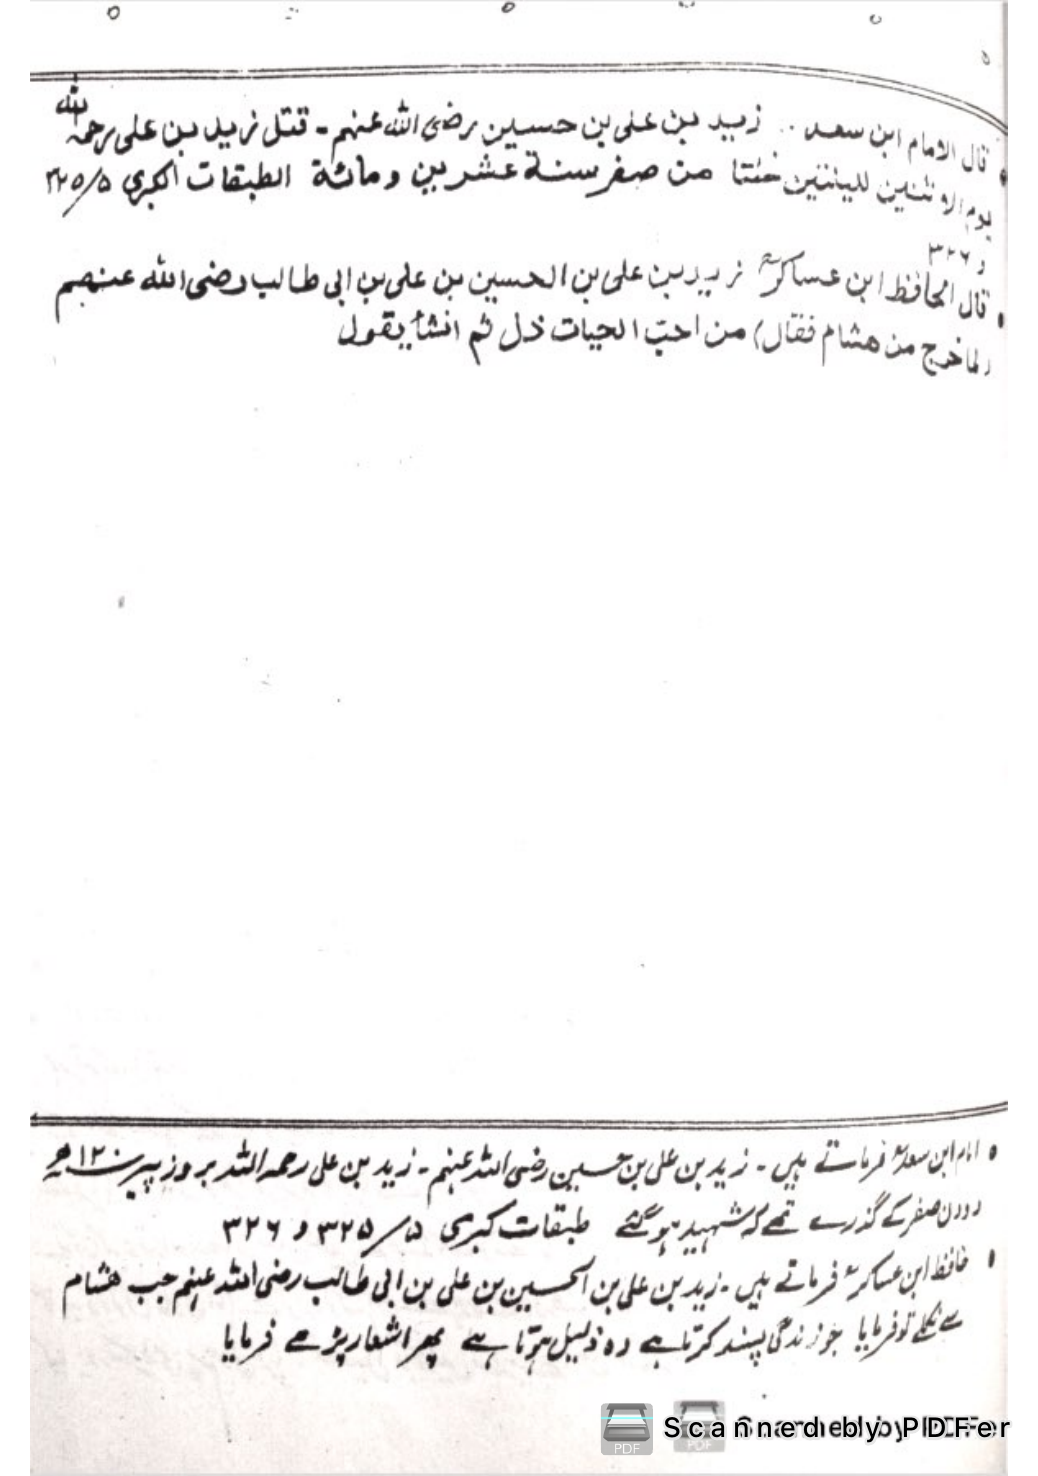 قال الامام ابن سعد .. زيد بن على بن حسين رضى الله عنهم - قتل زيد بن على رحمه الله
يوم الاثنين لليلتين خلتا من صفر سنة عشرين ومائة الطبقات الكبرى ۵/۳۲۵
و ۳۲۶
قال الحافظ ابن عساكرؒ زيد بن على بن الحسين بن على بن ابى طالب رضى الله عنهم
(لما خرج من هشام فقال) من احب الحيات ذل ثم انشأ يقول
امام ابن سعدؒ فرماتے ہیں - زید بن علی بن حسین رضی اللہ عنہم - زید بن علی رحمہ اللہ بروز پیر ۱۲۰ھ
دو دن صفر کے گذرے تھے کہ شہید ہو گئے طبقات کبری ۵/۳۲۵ و ۳۲۶
حافظ ابن عساکرؒ فرماتے ہیں - زید بن علی بن الحسین بن علی بن ابی طالب رضی اللہ عنہم جب ھشام
سے نکلے تو فرمایا جو زندگی پسند کرتا ہے وہ ذلیل ہوتا ہے پھر اشعار پڑھے فرمایا
Scanned by PDFer